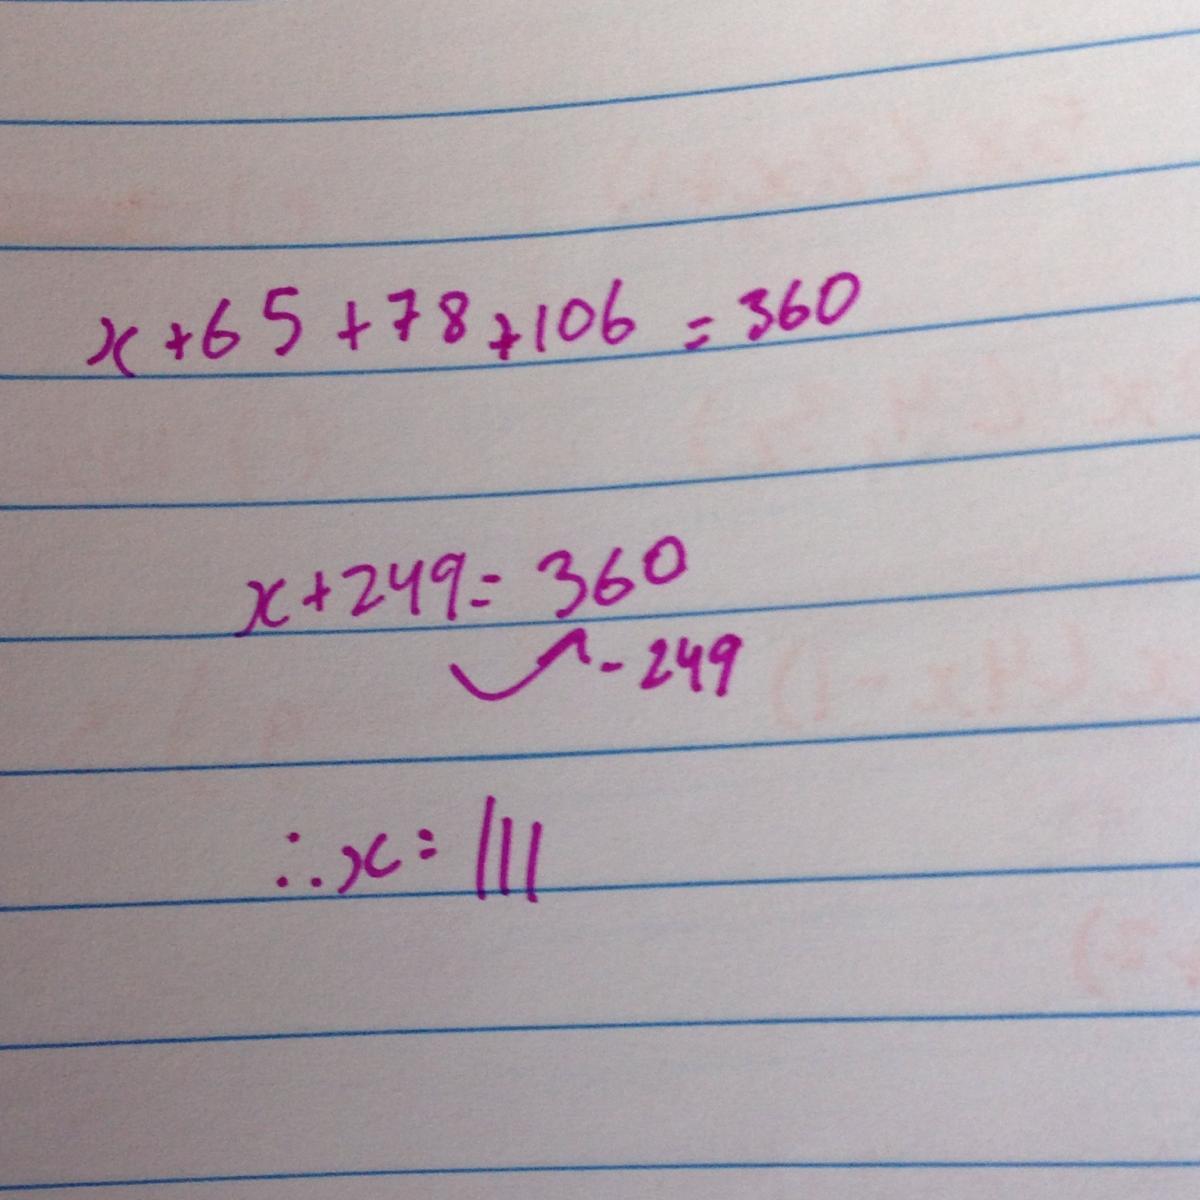 x+65+78+106=360
x+249=360
-249
∴x=111